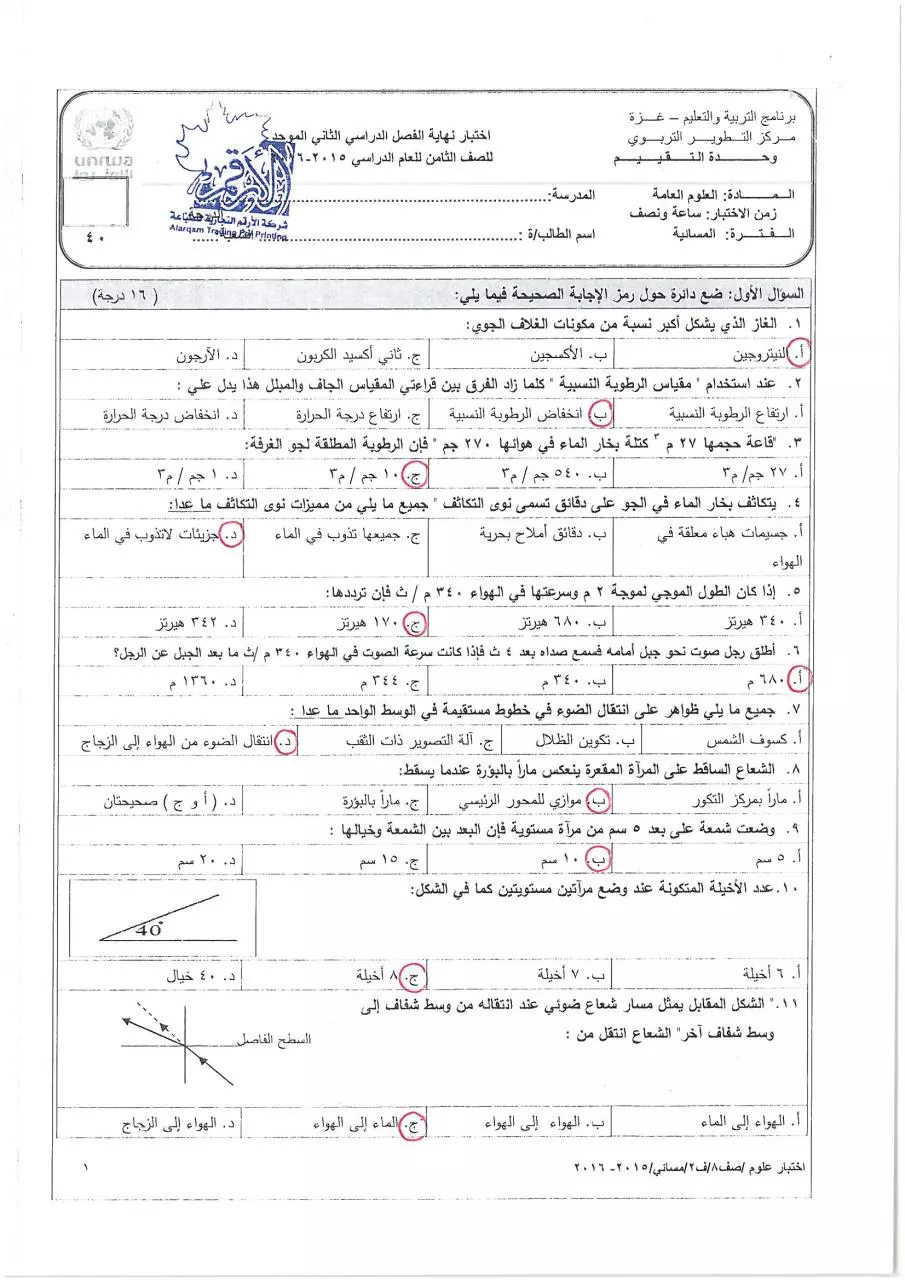 برنامج التربية والتعليم – غـــزة
مركز التطوير التربوي
وحـــدة التقييم
اختبار نهاية الفصل الدراسي الثاني الموحد
للصف الثامن للعام الدراسي ٢٠١٥-٢٠١٦
unrwa
المـــادة: العلوم العامة
المدرسة:
زمن الاختبار: ساعة ونصف
الفـترة: المسائية
اسم الطالب/ة :
٤٠
الأرقم
شركة الأرقم التجارية للطباعة
Alarqam Trading For Printing
السؤال الأول: ضع دائرة حول رمز الإجابة الصحيحة فيما يلي: ( ١٦ درجة)
١. الغاز الذي يشكل أكبر نسبة من مكونات الغلاف الجوي:
أ. النيتروجين ب. الأكسجين ج. ثاني أكسيد الكربون د. الآرجون
٢. عند استخدام " مقياس الرطوبة النسبية " كلما زاد الفرق بين قراءتي المقياس الجاف والمبلل هذا يدل علي :
أ. ارتفاع الرطوبة النسبية ب. انخفاض الرطوبة النسبية ج. ارتفاع درجة الحرارة د. انخفاض درجة الحرارة
٣. "قاعة حجمها ٢٧ م ٣ كتلة بخار الماء في هوائها ٢٧٠ جم " فإن الرطوبة المطلقة لجو الغرفة:
أ. ٢٧ جم/ م٣ ب. ٥٤٠ جم / م٣ ج. ١٠ جم / م٣ د. ١ جم / م٣
٤. يتكاثف بخار الماء في الجو على دقائق تسمى نوى التكاثف " جميع ما يلي من مميزات نوى التكاثف ما عدا:
أ. جسيمات هباء معلقة في الهواء ب. دقائق أملاح بحرية ج. جميعها تذوب في الماء د. جزيئات لاتذوب في الماء
٥. إذا كان الطول الموجي لموجة ٢ م وسرعتها في الهواء ٣٤٠ م / ث فإن ترددها:
أ. ٣٤٠ هيرتز ب. ٦٨٠ هيرتز ج. ١٧٠ هيرتز د. ٣٤٢ هيرتز
٦. أطلق رجل صوت نحو جبل أمامه فسمع صداه بعد ٤ ث فإذا كانت سرعة الصوت في الهواء ٣٤٠ م /ث ما بعد الجبل عن الرجل؟
أ. ٦٨٠ م ب. ٣٤٠ م ج. ٣٤٤ م د. ١٣٦٠ م
٧. جميع ما يلي ظواهر على انتقال الضوء في خطوط مستقيمة في الوسط الواحد ما عدا :
أ. كسوف الشمس ب. تكوين الظلال ج. آلة التصوير ذات الثقب د. انتقال الضوء من الهواء إلى الزجاج
٨. الشعاع الساقط على المرآة المقعرة ينعكس ماراً بالبؤرة عندما يسقط:
أ. ماراً بمركز التكور ب. موازي للمحور الرئيسي ج. ماراً بالبؤرة د. ( أ و ج ) صحيحتان
٩. وضعت شمعة على بعد ٥ سم من مرآة مستوية فإن البعد بين الشمعة وخيالها :
أ. ٥ سم ب. ١٠ سم ج. ١٥ سم د. ٢٠ سم
١٠. عدد الأخيلة المتكونة عند وضع مرآتين مستويتين كما في الشكل:
40°
أ. ٦ أخيلة ب. ٧ أخيلة ج. ٨ أخيلة د. ٤٠ خيال
١١. " الشكل المقابل يمثل مسار شعاع ضوئي عند انتقاله من وسط شفاف إلى
وسط شفاف آخر" الشعاع انتقل من :
السطح الفاصل
أ. الهواء إلى الماء ب. الهواء إلى الهواء ج. الماء إلى الهواء د. الهواء إلى الزجاج
اختبار علوم /صف٨/ف٢/مسائي/٢٠١٥-٢٠١٦ ١